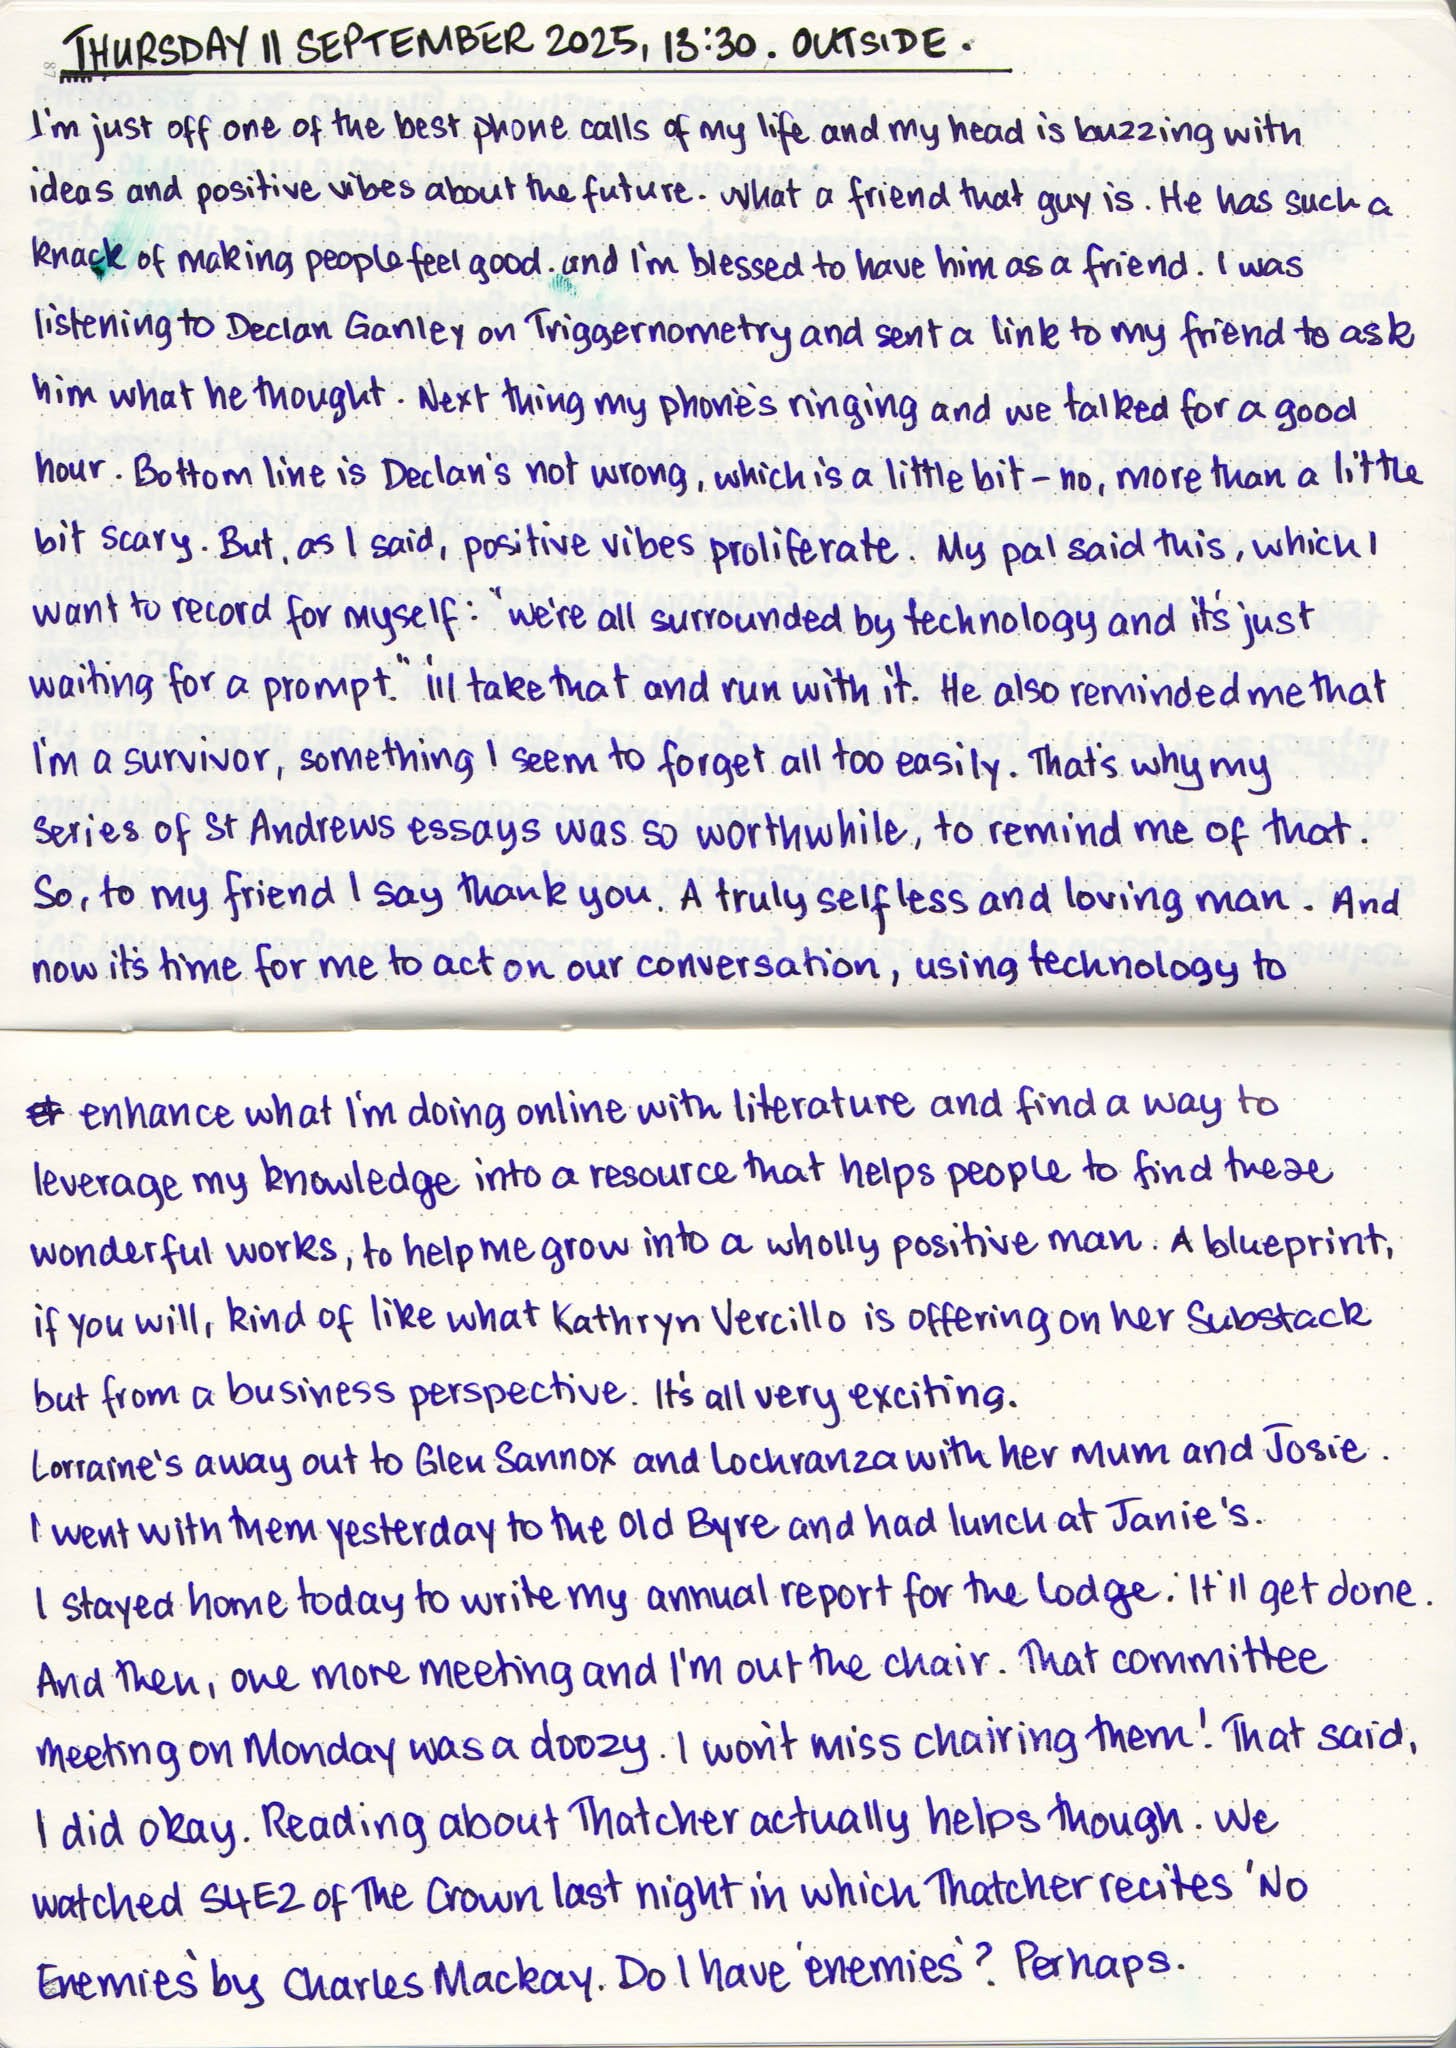 THURSDAY 11 SEPTEMBER 2025, 13:30. OUTSIDE.
I'm just off one of the best phone calls of my life and my head is buzzing with
ideas and positive vibes about the future. What a friend that guy is. He has such a
knack of making people feel good. and I'm blessed to have him as a friend. I was
listening to Declan Ganley on Triggernometry and sent a link to my friend to ask
him what he thought. Next thing my phone's ringing and we talked for a good
hour. Bottom line is Declan's not wrong, which is a little bit - no, more than a little
bit scary. But, as I said, positive vibes proliferate. My pal said this, which I
want to record for myself: "we're all surrounded by technology and it's just
waiting for a prompt." I'll take that and run with it. He also reminded me that
I'm a survivor, something I seem to forget all too easily. That's why my
series of St Andrews essays was so worthwhile, to remind me of that.
So, to my friend I say thank you. A truly selfless and loving man. And
now it's time for me to act on our conversation, using technology to
enhance what I'm doing online with literature and find a way to
leverage my knowledge into a resource that helps people to find these
wonderful works, to help me grow into a wholly positive man. A blueprint,
if you will, kind of like what Kathryn Vercillo is offering on her Substack
but from a business perspective. It's all very exciting.
Lorraine's away out to Glen Sannox and Lochranza with her Mum and Josie.
I went with them yesterday to the Old Byre and had lunch at Janie's.
I stayed home today to write my annual report for the Lodge. It'll get done.
And then, one more meeting and I'm out the chair. That committee
meeting on Monday was a doozy. I won't miss chairing them! That said,
I did okay. Reading about Thatcher actually helps though. We
watched S4E2 of The Crown last night in which Thatcher recites 'No
Enemies' by Charles Mackay. Do I have 'enemies'? Perhaps.